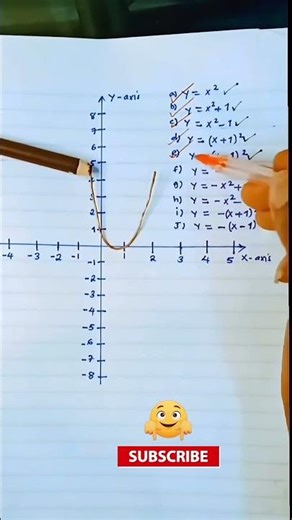 Y-axis
8
7
6
5
4
3
2
1
-4 -3 -2 -1 1 2 3 4 5 X-axis
-1
-2
-3
-4
-5
-6
-7
-8
a) y = x² ✓
b) y = x² + 1 ✓
c) y = x² - 1 ✓
d) y = (x + 1)² ✓
e) y 1)² ✓
f) y =
g) y = -x² +
h) y = -x² -
i) y = -(x + 1)
J) y = -(x - 1)
SUBSCRIBE